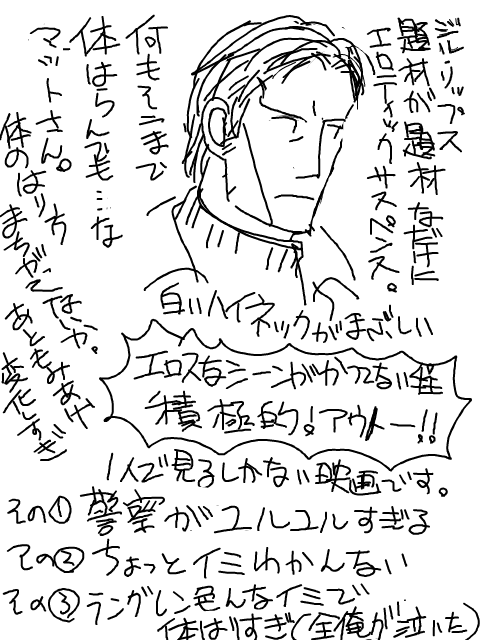 ジル・リップス
題材が題材なだけに
エロティックサスペンス。
何もそこまで
体はらんでも…な
マットさん。
体のはりち
まちがってないか。
あともみあげ
変化しすぎ
白いハイネックがまぶしい
エロスなシーンがかつてない程
積極的!アウトー!!
1人で見るしかない映画です。
その① 警察がユルユルすぎる
その② ちょっとイミわかんない
その③ ラングレン色んなイミで
体はりすぎ(全俺が泣いた)